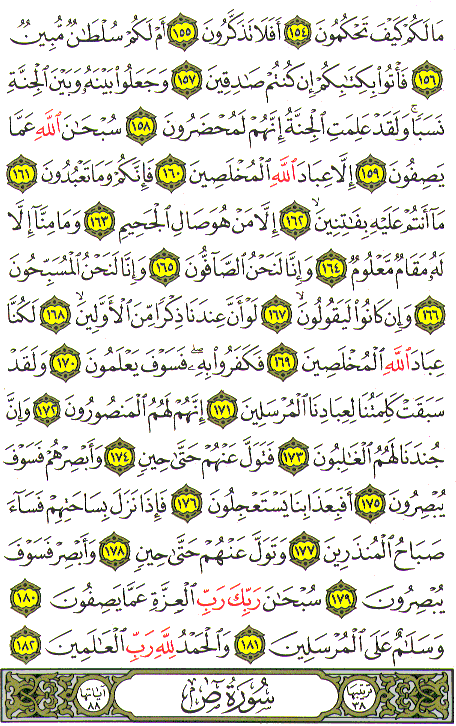 مَا لَكُمۡ كَيۡفَ تَحۡكُمُونَ ١٥٤ أَفَلَا تَذَكَّرُونَ ١٥٥ أَمۡ لَكُمۡ سُلۡطَٰنٞ مُّبِينٞ
١٥٦ فَأۡتُواْ بِكِتَٰبِكُمۡ إِن كُنتُمۡ صَٰدِقِينَ ١٥٧ وَجَعَلُواْ بَيۡنَهُۥ وَبَيۡنَ ٱلۡجِنَّةِ
نَسَبٗاۚ وَلَقَدۡ عَلِمَتِ ٱلۡجِنَّةُ إِنَّهُمۡ لَمُحۡضَرُونَ ١٥٨ سُبۡحَٰنَ ٱللَّهِ عَمَّا
يَصِفُونَ ١٥٩ إِلَّا عِبَادَ ٱللَّهِ ٱلۡمُخۡلَصِينَ ١٦٠ فَإِنَّكُمۡ وَمَا تَعۡبُدُونَ ١٦١
مَآ أَنتُمۡ عَلَيۡهِ بِفَٰتِنِينَ ١٦٢ إِلَّا مَنۡ هُوَ صَالِ ٱلۡجَحِيمِ ١٦٣ وَمَا مِنَّآ إِلَّا
لَهُۥ مَقَامٞ مَّعۡلُومٞ ١٦٤ وَإِنَّا لَنَحۡنُ ٱلصَّآفُّونَ ١٦٥ وَإِنَّا لَنَحۡنُ ٱلۡمُسَبِّحُونَ
١٦٦ وَإِن كَانُواْ لَيَقُولُونَ ١٦٧ لَوۡ أَنَّ عِندَنَا ذِكۡرٗا مِّنَ ٱلۡأَوَّلِينَ ١٦٨ لَكُنَّا
عِبَادَ ٱللَّهِ ٱلۡمُخۡلَصِينَ ١٦٩ فَكَفَرُواْ بِهِۦۖ فَسَوۡفَ يَعۡلَمُونَ ١٧٠ وَلَقَدۡ
سَبَقَتۡ كَلِمَتُنَا لِعِبَادِنَا ٱلۡمُرۡسَلِينَ ١٧١ إِنَّهُمۡ لَهُمُ ٱلۡمَنصُورُونَ ١٧٢ وَإِنَّ
جُندَنَا لَهُمُ ٱلۡغَٰلِبُونَ ١٧٣ فَتَوَلَّ عَنۡهُمۡ حَتَّىٰ حِينٖ ١٧٤ وَأَبۡصِرۡهُمۡ فَسَوۡفَ
يُبۡصِرُونَ ١٧٥ أَفَبِعَذَابِنَا يَسۡتَعۡجِلُونَ ١٧٦ فَإِذَا نَزَلَ بِسَاحَتِهِمۡ فَسَآءَ
صَبَاحُ ٱلۡمُنذَرِينَ ١٧٧ وَتَوَلَّ عَنۡهُمۡ حَتَّىٰ حِينٖ ١٧٨ وَأَبۡصِرۡ فَسَوۡفَ
يُبۡصِرُونَ ١٧٩ سُبۡحَٰنَ رَبِّكَ رَبِّ ٱلۡعِزَّةِ عَمَّا يَصِفُونَ ١٨٠
وَسَلَٰمٌ عَلَى ٱلۡمُرۡسَلِينَ ١٨١ وَٱلۡحَمۡدُ لِلَّهِ رَبِّ ٱلۡعَٰلَمِينَ ١٨٢
ترتيبها ٣٨ سُورَةُ صٓ آياتها ٨٨